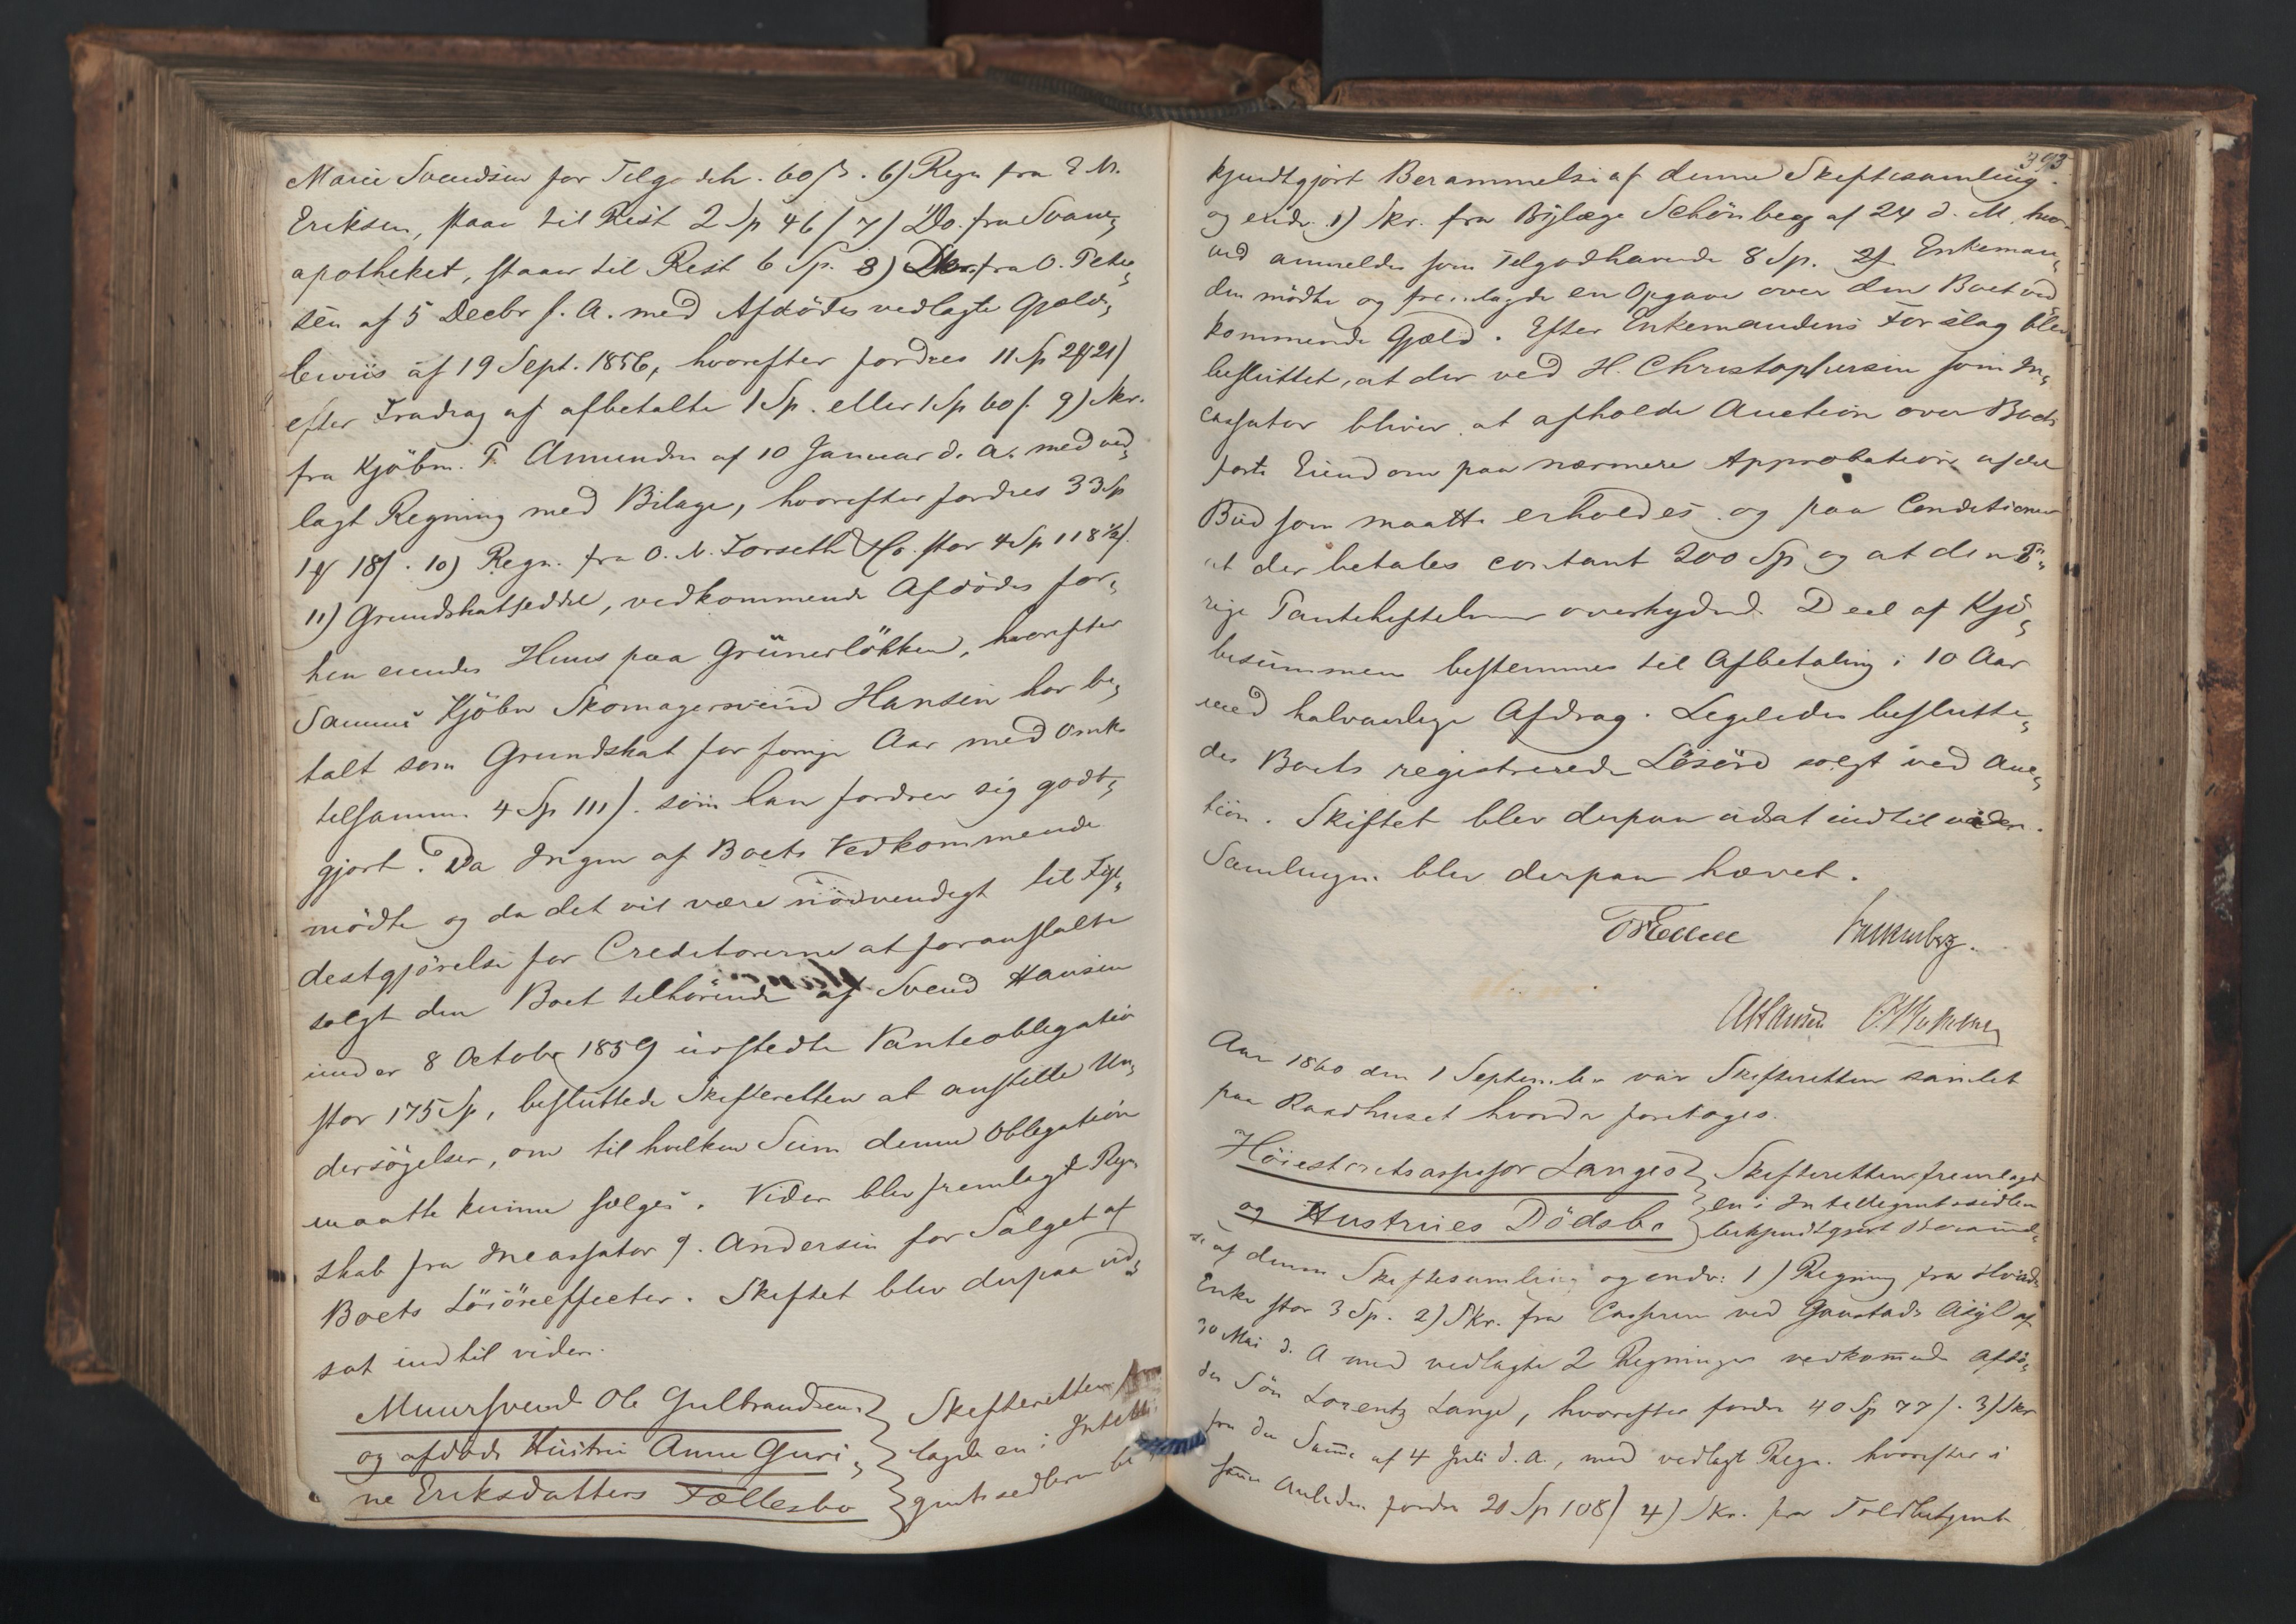 Marie Svendsen for Tilgodeh. 60 ß. 6) Regn fra E M.
Eriksen, staar til Rest 2 Sp 46 ß 7) Do. fra Svane,
apotheket, staar til Rest 6 Sp. 8) Skr. fra O. Peter,
sen af 5 Decbr f. A. med Afdödes vedlagte Gjælds,
beviis af 19 Sept. 1856, hvorefter fordres 11 Sp 2 21 ß
efter Fradrag af afbetalte 1 Sp. eller 1 Sp 60 ß. 9) Skr.
fra Kjöbm. T. Amundsen af 10 Januar d. A. med ved,
lagt Regning med Bilage, hvorefter fordres 33 Sp
1 18 ß. 10) Regn. fra O. N. Forseth & Co. stor 4 Sp 118 ½ ß.
11) Grundskatseddel, vedkommende Afdödes for,
hen eiende Huus paa Grünerløkken, hvorefter
Samme Kjöber Skomagersvend Hansen har be,
talt som Grundskat for forrige Aar med Omk.
tilsammen 4 Sp 111 ß. som han fordrer sig godt,
gjort. Da Ingen af Boets Vedkommende
mödte og da det vil være nödvendigt til Fyl,
destgjörelse for Creditorerne at foranstalte
solgt den Boet tilhörende af Svend Hansen
under 8 Octobr 1859 udstedte Panteobligation
stor 175 Sp, besluttede Skifteretten at anstille Un,
dersögelser, om til hvilken Sum denne Obligation
maatte kunne sælges. Videre blev fremlagt Regn
skab fra Incassator J. Andersen for Salget af
Boets Lösöreeffecter. Skiftet blev derpaa ud,
sat indtil videre.
Muursvend Ole Gulbrandsens Skifteretten frem
og afdöde Hustru Anne Guri, lagde en i Intelli
ne Eriksdatters Fællesbo gentssedlerne be
393
kjendtgjort Berammelse af denne Skiftesamling.
og endv. 1) Skr. fra Bylæge Schönberg af 24 d. M. hvor
ved anmeldes som Tilgodehavende 8 Sp. 2) Enkeman,
den mödte og fremlagde en Opgave over den Boet ved
kommende Gjæld. Efter Enkemandens Forslag blev
besluttet, at der ved H. Christophersen som In,
cassator bliver at afholde Auction over Boets
faste Eiendom paa nærmere Approbation af det
Bud som maatte erholdes og paa Conditioner
at der betales contant 200 Sp og at den ö,
rige Pantehæftelserne overskydende Deel af Kjö,
besummen bestemmes til Afbetaling i 10 Aar
med halvaarlige Afdrag. Ligeledes beslutte,
des Boets registrerede Lösöre solgt ved Auc,
tion. Skiftet blev derpaa udsat indtil videre.
Samlingen blev derpaa hævet.
AHansen
Aar 1860 den 1 September var Skifteretten samlet
paa Raadhuset hvorda foretoges.
Höiesteretsassessor Langes Skifteretten fremlagde
og Hustrues Dödsbo en i Intelligentssedlen
bekjendtgjort Berammel,
se af denne Skiftesamling og endv: 1) Regning fra
Enke stor 3 Sp. 2) Skr. fra Casserer ved Gaustads Asyl af
30 Mai d. A med vedlagte 2 Regninger vedkommende Afdö,
des Sön Lorentz Lange, hvorefter fordres 40 Sp 77 ß. 3) Skr
fra den Samme af 4 Juli d. A., med vedlagt Regn. hvorefter i
samme Anledn. fordres 20 Sp 108 ß 4) Skr. fra Toldbetjent